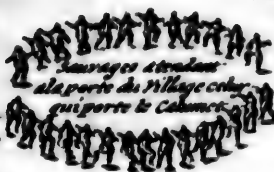 Sauvages attendant
a la porte du Village celuy
qui porte le Calumet